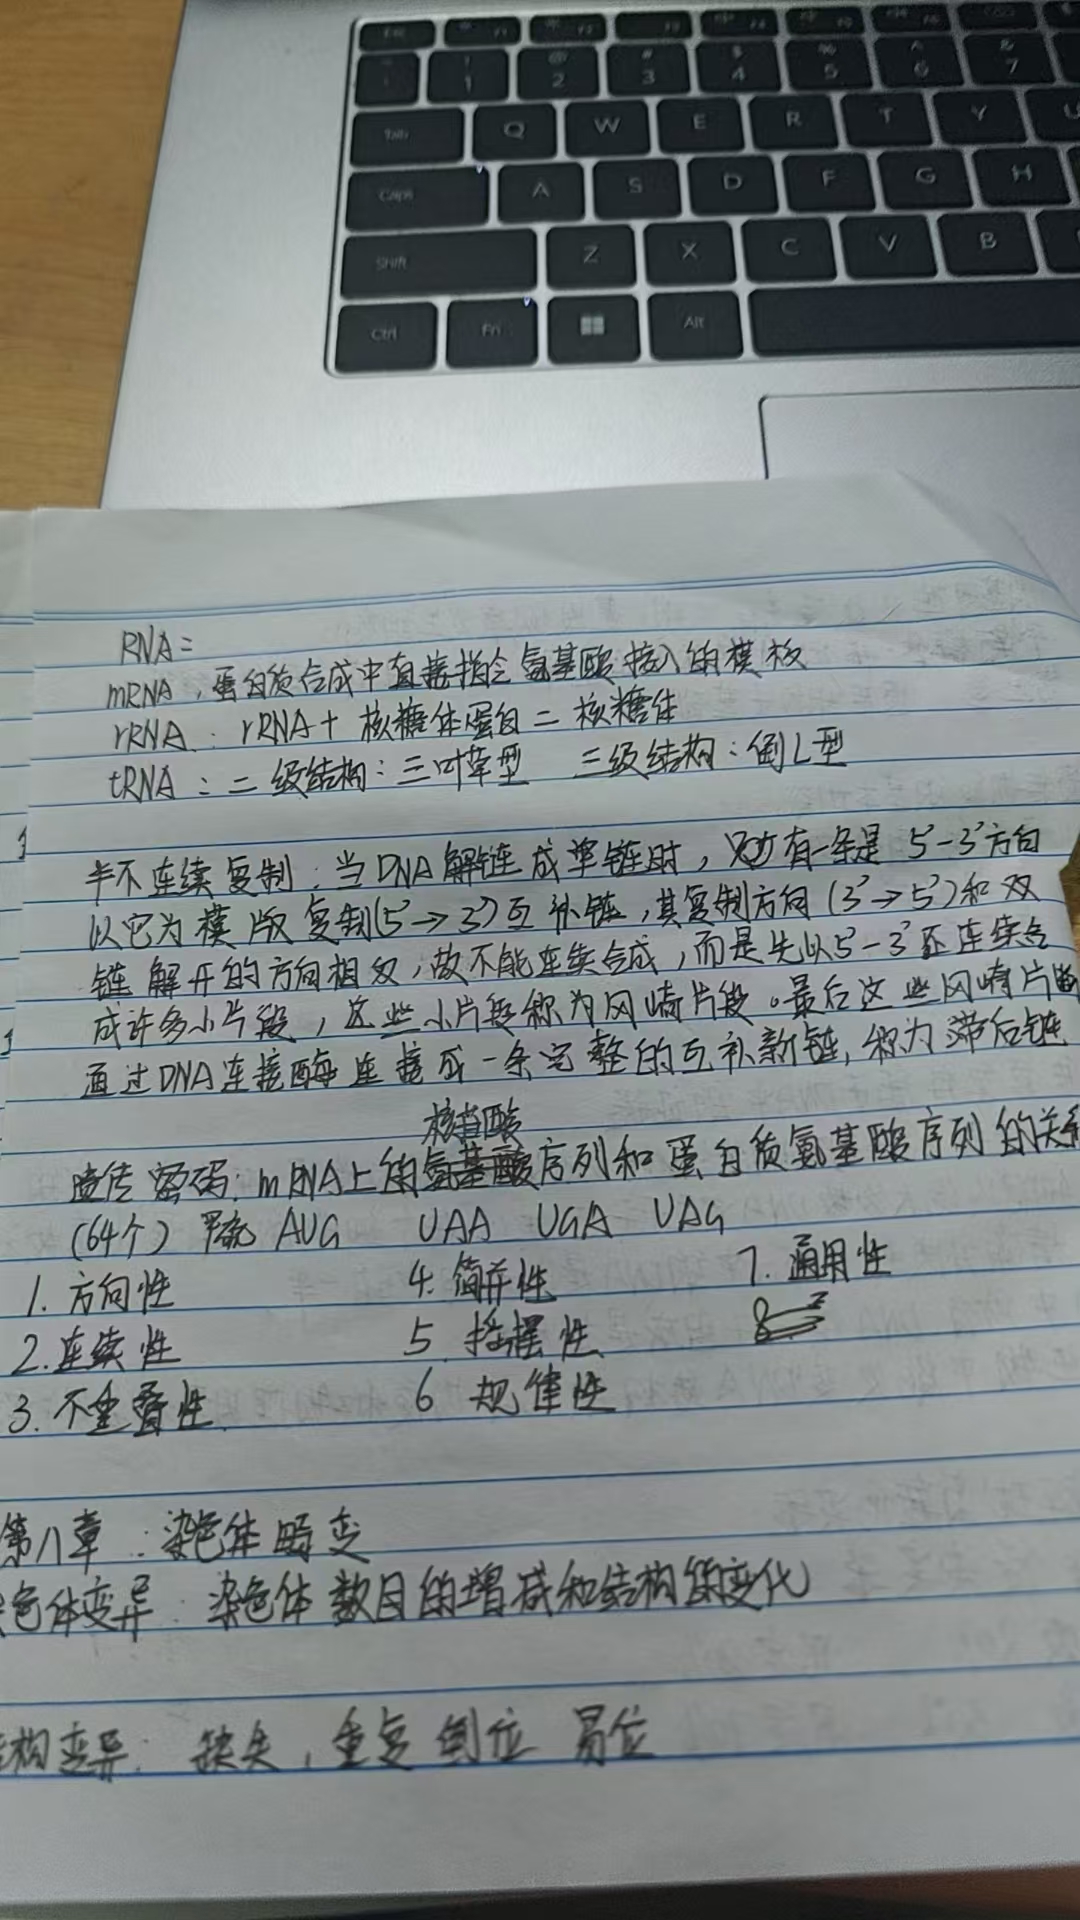 Q W E R T Y U
Caps A S D F G H
Shift Z X C V B
Ctrl Fn Alt
1 2 3 4 5 6 7
RNA:
mRNA, 蛋白质合成中直接指令氨基酸接入的模板
rRNA: rRNA+核糖体蛋白=核糖体
tRNA: 二级结构:三叶草型 三级结构:倒L型
半不连续复制:当DNA解链成单链时, 有一条是5'-3'方向
以它为模版复制(5'→3')互补链,其复制方向(3'→5')和双
链解开的方向相反,故不能连续合成,而是先以5'-3'连续合
成许多小片段,这些小片段称为冈崎片段。最后这些冈崎片段
通过DNA连接酶连接成一条完整的互补新链,称为滞后链
核苷酸
遗传密码:mRNA上的氨基酸序列和蛋白质氨基酸序列的关系
(64个) AUG UAA UGA UAG
1. 方向性 4. 简并性 7. 通用性
2. 连续性 5. 摇摆性
3. 不重叠性 6 规律性
第八章:染色体畸变
色体变异:染色体数目的增减和结构的变化
构变异:缺失,重复 倒位 易位